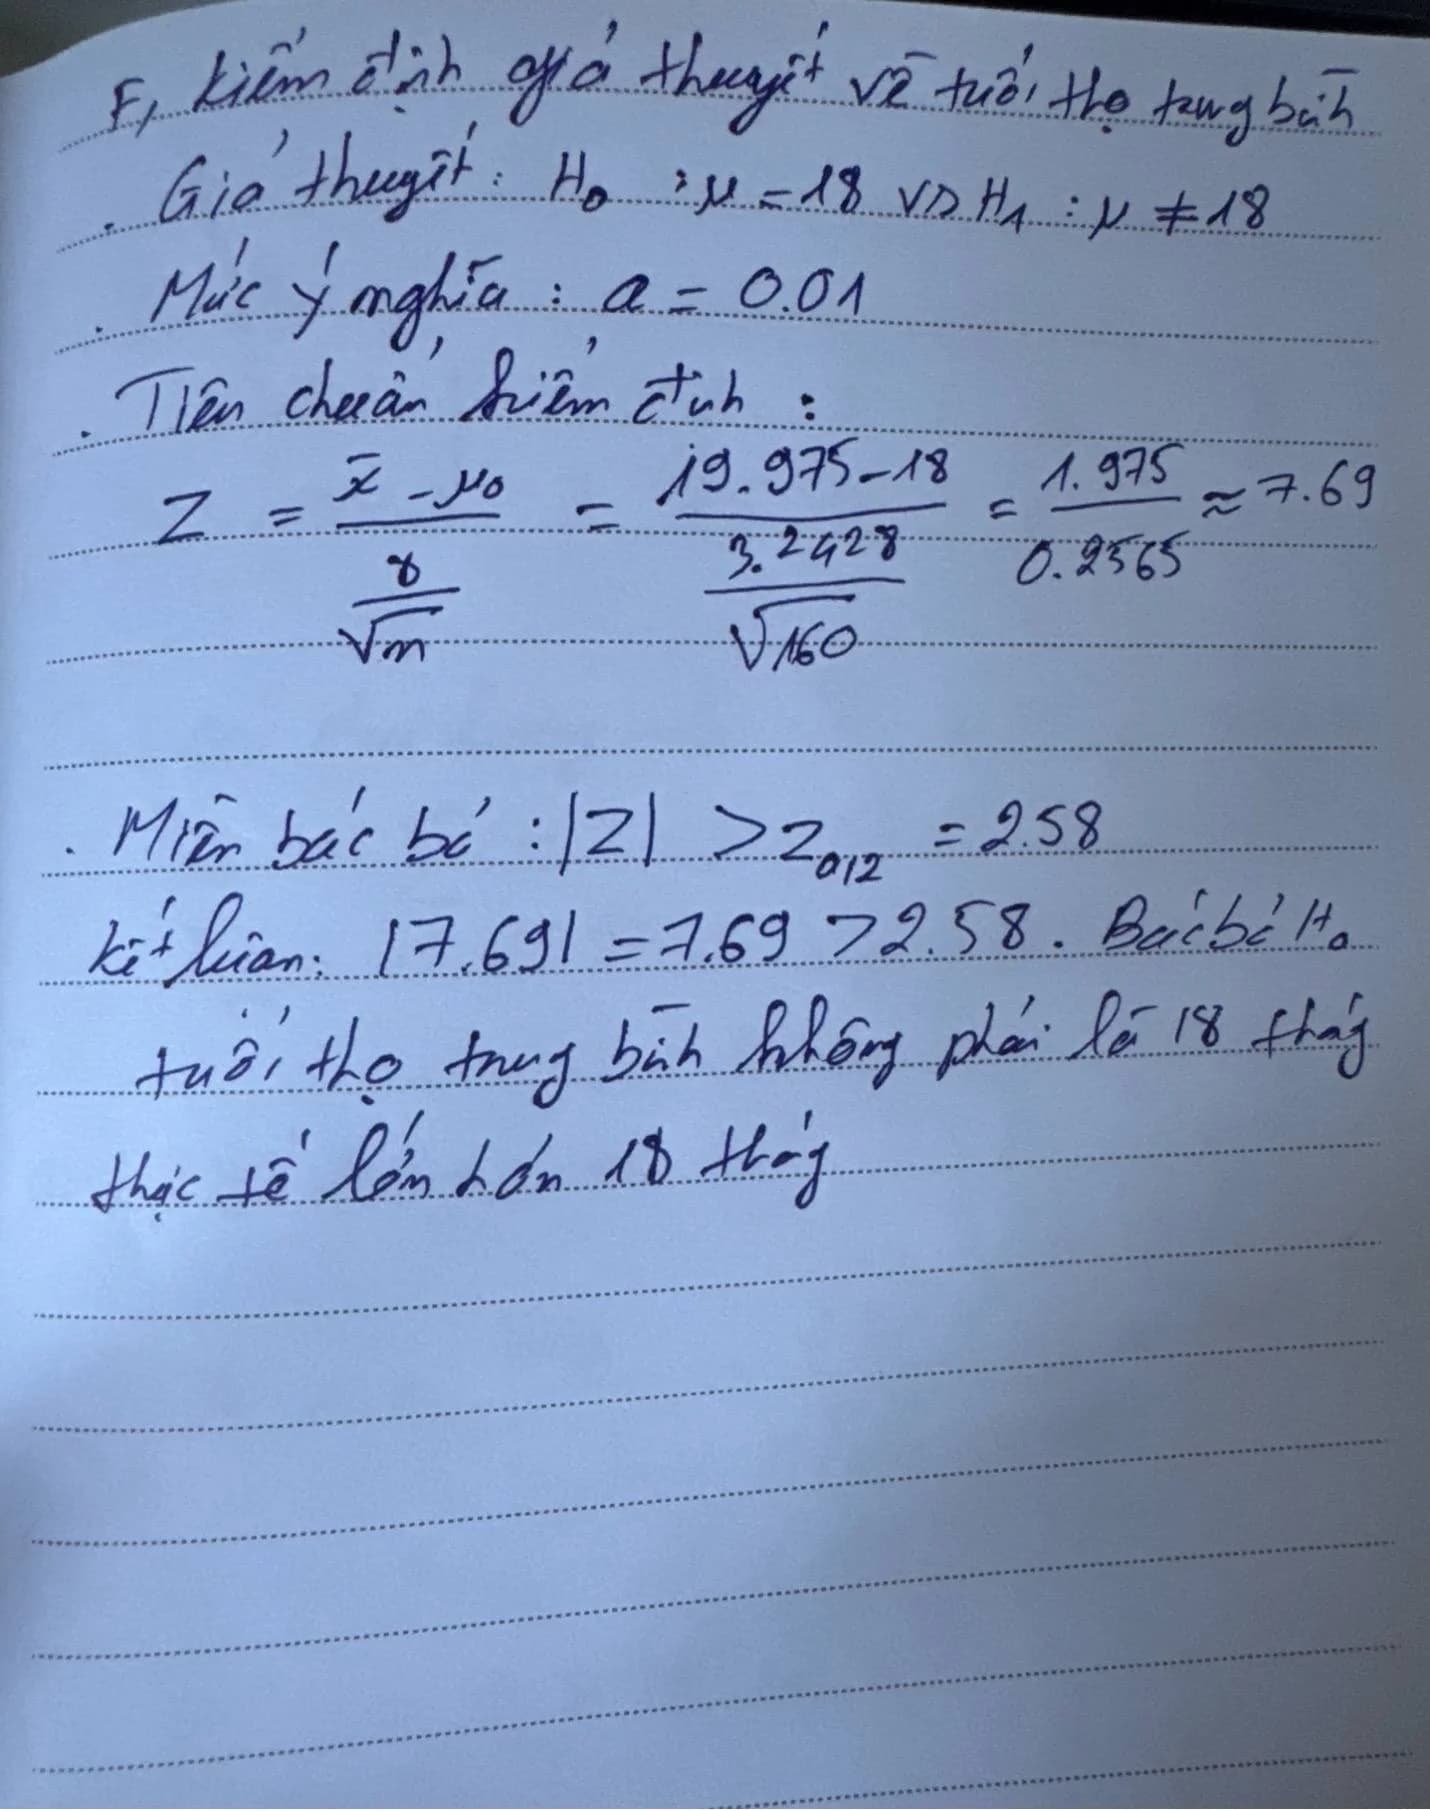 F, Kiểm định giả thuyết về tuổi thọ trung bình
. Giả thuyết: H₀ : μ = 18 vs H₁ : μ ≠ 18
. Mức ý nghĩa : α = 0.01
. Tiêu chuẩn kiểm định :
Z = (x̄ - μ₀) / (s / √n) = (19.975 - 18) / (3.2428 / √160) = 1.975 / 0.2565 ≈ 7.69
. Miền bác bỏ : |Z| > Z α/2 = 2.58
Kết luận: |7.69| = 7.69 > 2.58. Bác bỏ H₀
tuổi thọ trung bình không phải là 18 tháng
thực tế lớn hơn 18 tháng